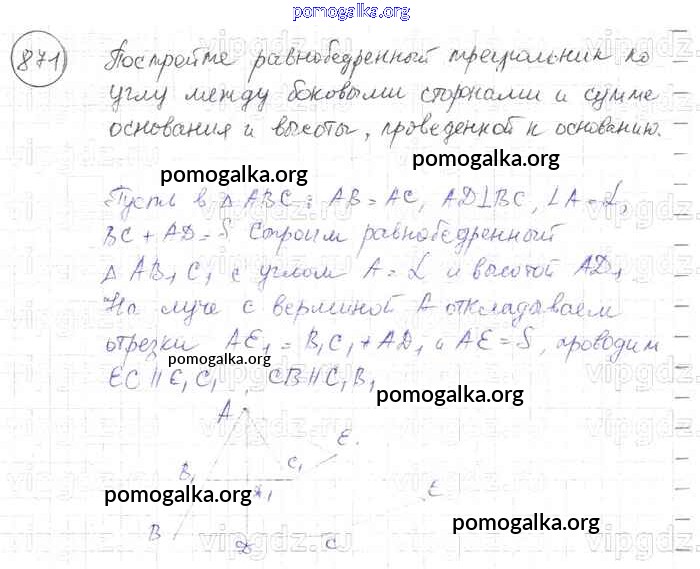 pomogalka.org
871 Постройте равнобедренный треугольник по
углу между боковыми сторонами и сумме
основания и высоты, проведенной к основанию.
pomogalka.org
Пусть в △ ABC: AB = AC, AD⊥BC, ∠A = α,
BC + AD = S Строим равнобедренный
△ AB₁C₁ с углом A = α и высотой AD₁
На луче с вершиной A откладываем
отрезки AE₁ = B₁C₁ + AD₁ и AE = S, проводим
pomogalka.org
EC ∥ E₁C₁, CB ∥ C₁B₁
pomogalka.org
A
E₁
B₁ C₁
pomogalka.org
E
B D C
pomogalka.org